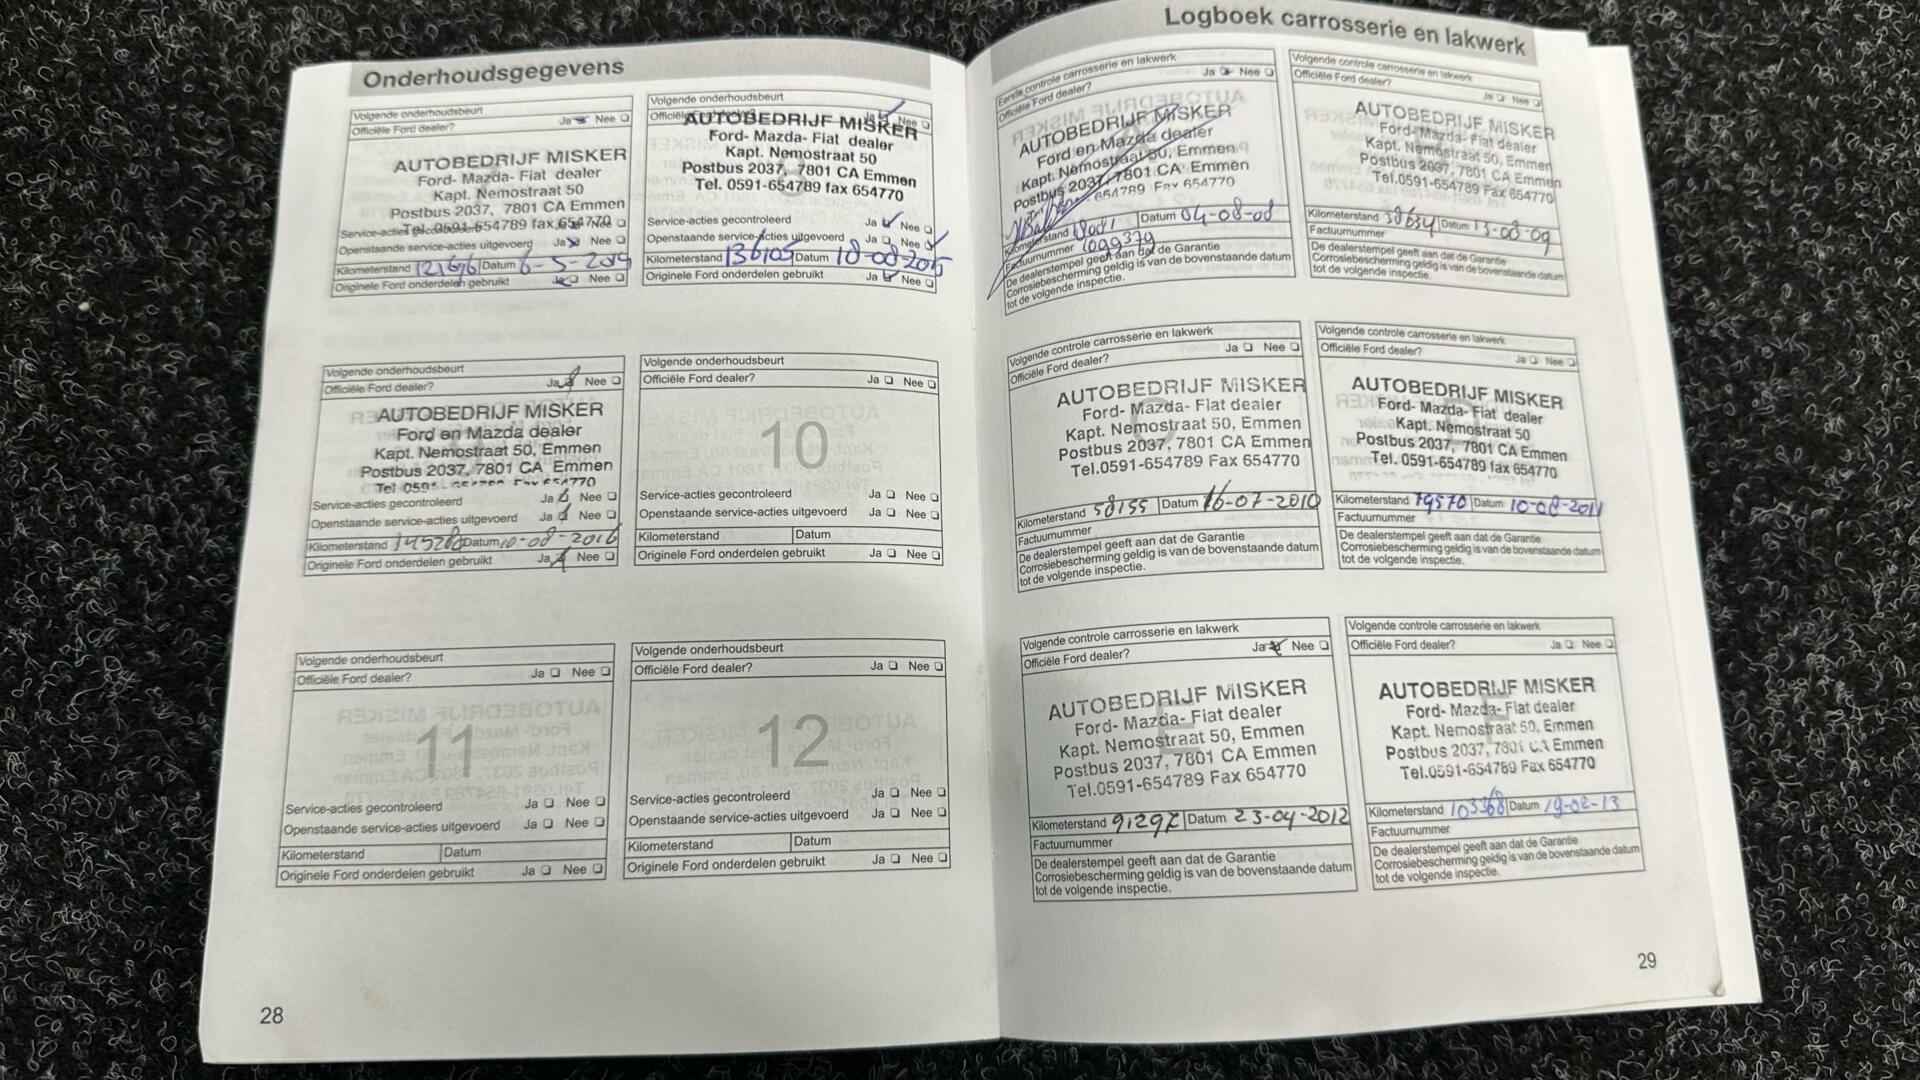 Onderhoudsgegevens
Volgende onderhoudsbeurt
Officiële Ford dealer? Ja Nee
AUTOBEDRIJF MISKER
Ford- Mazda- Fiat dealer
Kapt. Nemostraat 50
Postbus 2037, 7801 CA Emmen
Tel. 0591-654789 fax 654770
Service-acties Ja Nee
Openstaande service-acties uitgevoerd Ja Nee
Kilometerstand 121616 Datum 6-5-2015
Originele Ford onderdelen gebruikt Ja Nee
Volgende onderhoudsbeurt
Officiële Ja Nee
AUTOBEDRIJF MISKER
Ford- Mazda- Fiat dealer
Kapt. Nemostraat 50
Postbus 2037, 7801 CA Emmen
Tel. 0591-654789 fax 654770
Service-acties gecontroleerd Ja Nee
Openstaande service-acties uitgevoerd Ja Nee
Kilometerstand 136105 Datum 18-08-2015
Originele Ford onderdelen gebruikt Ja Nee
Volgende onderhoudsbeurt
Officiële Ford dealer? Ja Nee
AUTOBEDRIJF MISKER
Ford en Mazda dealer
Kapt. Nemostraat 50, Emmen
Postbus 2037, 7801 CA Emmen
Service-acties gecontroleerd Ja Nee
Openstaande service-acties uitgevoerd Ja Nee
Kilometerstand Datum 10-08-2016
Originele Ford onderdelen gebruikt Ja Nee
Volgende onderhoudsbeurt
Officiële Ford dealer? Ja Nee
10
Service-acties gecontroleerd Ja Nee
Openstaande service-acties uitgevoerd Ja Nee
Kilometerstand Datum
Originele Ford onderdelen gebruikt Ja Nee
Volgende onderhoudsbeurt
Officiële Ford dealer? Ja Nee
11
Service-acties gecontroleerd Ja Nee
Openstaande service-acties uitgevoerd Ja Nee
Kilometerstand Datum
Originele Ford onderdelen gebruikt Ja Nee
Volgende onderhoudsbeurt
Officiële Ford dealer? Ja Nee
12
Service-acties gecontroleerd Ja Nee
Openstaande service-acties uitgevoerd Ja Nee
Kilometerstand Datum
Originele Ford onderdelen gebruikt Ja Nee
28
Logboek carrosserie en lakwerk
Eerste controle carrosserie en lakwerk
Officiële Ford dealer? Ja Nee
AUTOBEDRIJF MISKER
Ford en Mazda dealer
Kapt. Nemostraat 50, Emmen
Postbus 2037, 7801 CA Emmen
654789 Fax 654770
Kilometerstand Datum 04-08-08
Factuurnummer 1099379
De dealerstempel geeft aan dat de Garantie
Corrosiebescherming geldig is van de bovenstaande datum
tot de volgende inspectie.
Volgende controle carrosserie en lakwerk
Officiële Ford dealer? Ja Nee
AUTOBEDRIJF MISKER
Ford- Mazda- Fiat dealer
Kapt. Nemostraat 50, Emmen
Postbus 2037, 7801 CA Emmen
Tel.0591-654789 Fax 654770
Kilometerstand 38634 Datum 13-08-09
Factuurnummer
De dealerstempel geeft aan dat de Garantie
Corrosiebescherming geldig is van de bovenstaande datum
tot de volgende inspectie.
Volgende controle carrosserie en lakwerk
Officiële Ford dealer? Ja Nee
AUTOBEDRIJF MISKER
Ford- Mazda- Fiat dealer
Kapt. Nemostraat 50, Emmen
Postbus 2037, 7801 CA Emmen
Tel.0591-654789 Fax 654770
Kilometerstand 58155 Datum 16-07-2010
Factuurnummer
De dealerstempel geeft aan dat de Garantie
Corrosiebescherming geldig is van de bovenstaande datum
tot de volgende inspectie.
Volgende controle carrosserie en lakwerk
Officiële Ford dealer? Ja Nee
AUTOBEDRIJF MISKER
Ford- Mazda- Fiat dealer
Kapt. Nemostraat 50
Postbus 2037, 7801 CA Emmen
Tel. 0591-654789 fax 654770
Kilometerstand 79570 Datum 10-08-2011
Factuurnummer
De dealerstempel geeft aan dat de Garantie
Corrosiebescherming geldig is van de bovenstaande datum
tot de volgende inspectie.
Volgende controle carrosserie en lakwerk
Officiële Ford dealer? Ja Nee
AUTOBEDRIJF MISKER
Ford- Mazda- Fiat dealer
Kapt. Nemostraat 50, Emmen
Postbus 2037, 7801 CA Emmen
Tel.0591-654789 Fax 654770
Kilometerstand 91297 Datum 23-04-2012
Factuurnummer
De dealerstempel geeft aan dat de Garantie
Corrosiebescherming geldig is van de bovenstaande datum
tot de volgende inspectie.
Volgende controle carrosserie en lakwerk
Officiële Ford dealer? Ja Nee
AUTOBEDRIJF MISKER
Ford- Mazda- Fiat dealer
Kapt. Nemostraat 50, Emmen
Postbus 2037, 7801 CA Emmen
Tel.0591-654789 Fax 654770
Kilometerstand 103368 Datum 19-02-13
Factuurnummer
De dealerstempel geeft aan dat de Garantie
Corrosiebescherming geldig is van de bovenstaande datum
tot de volgende inspectie.
29